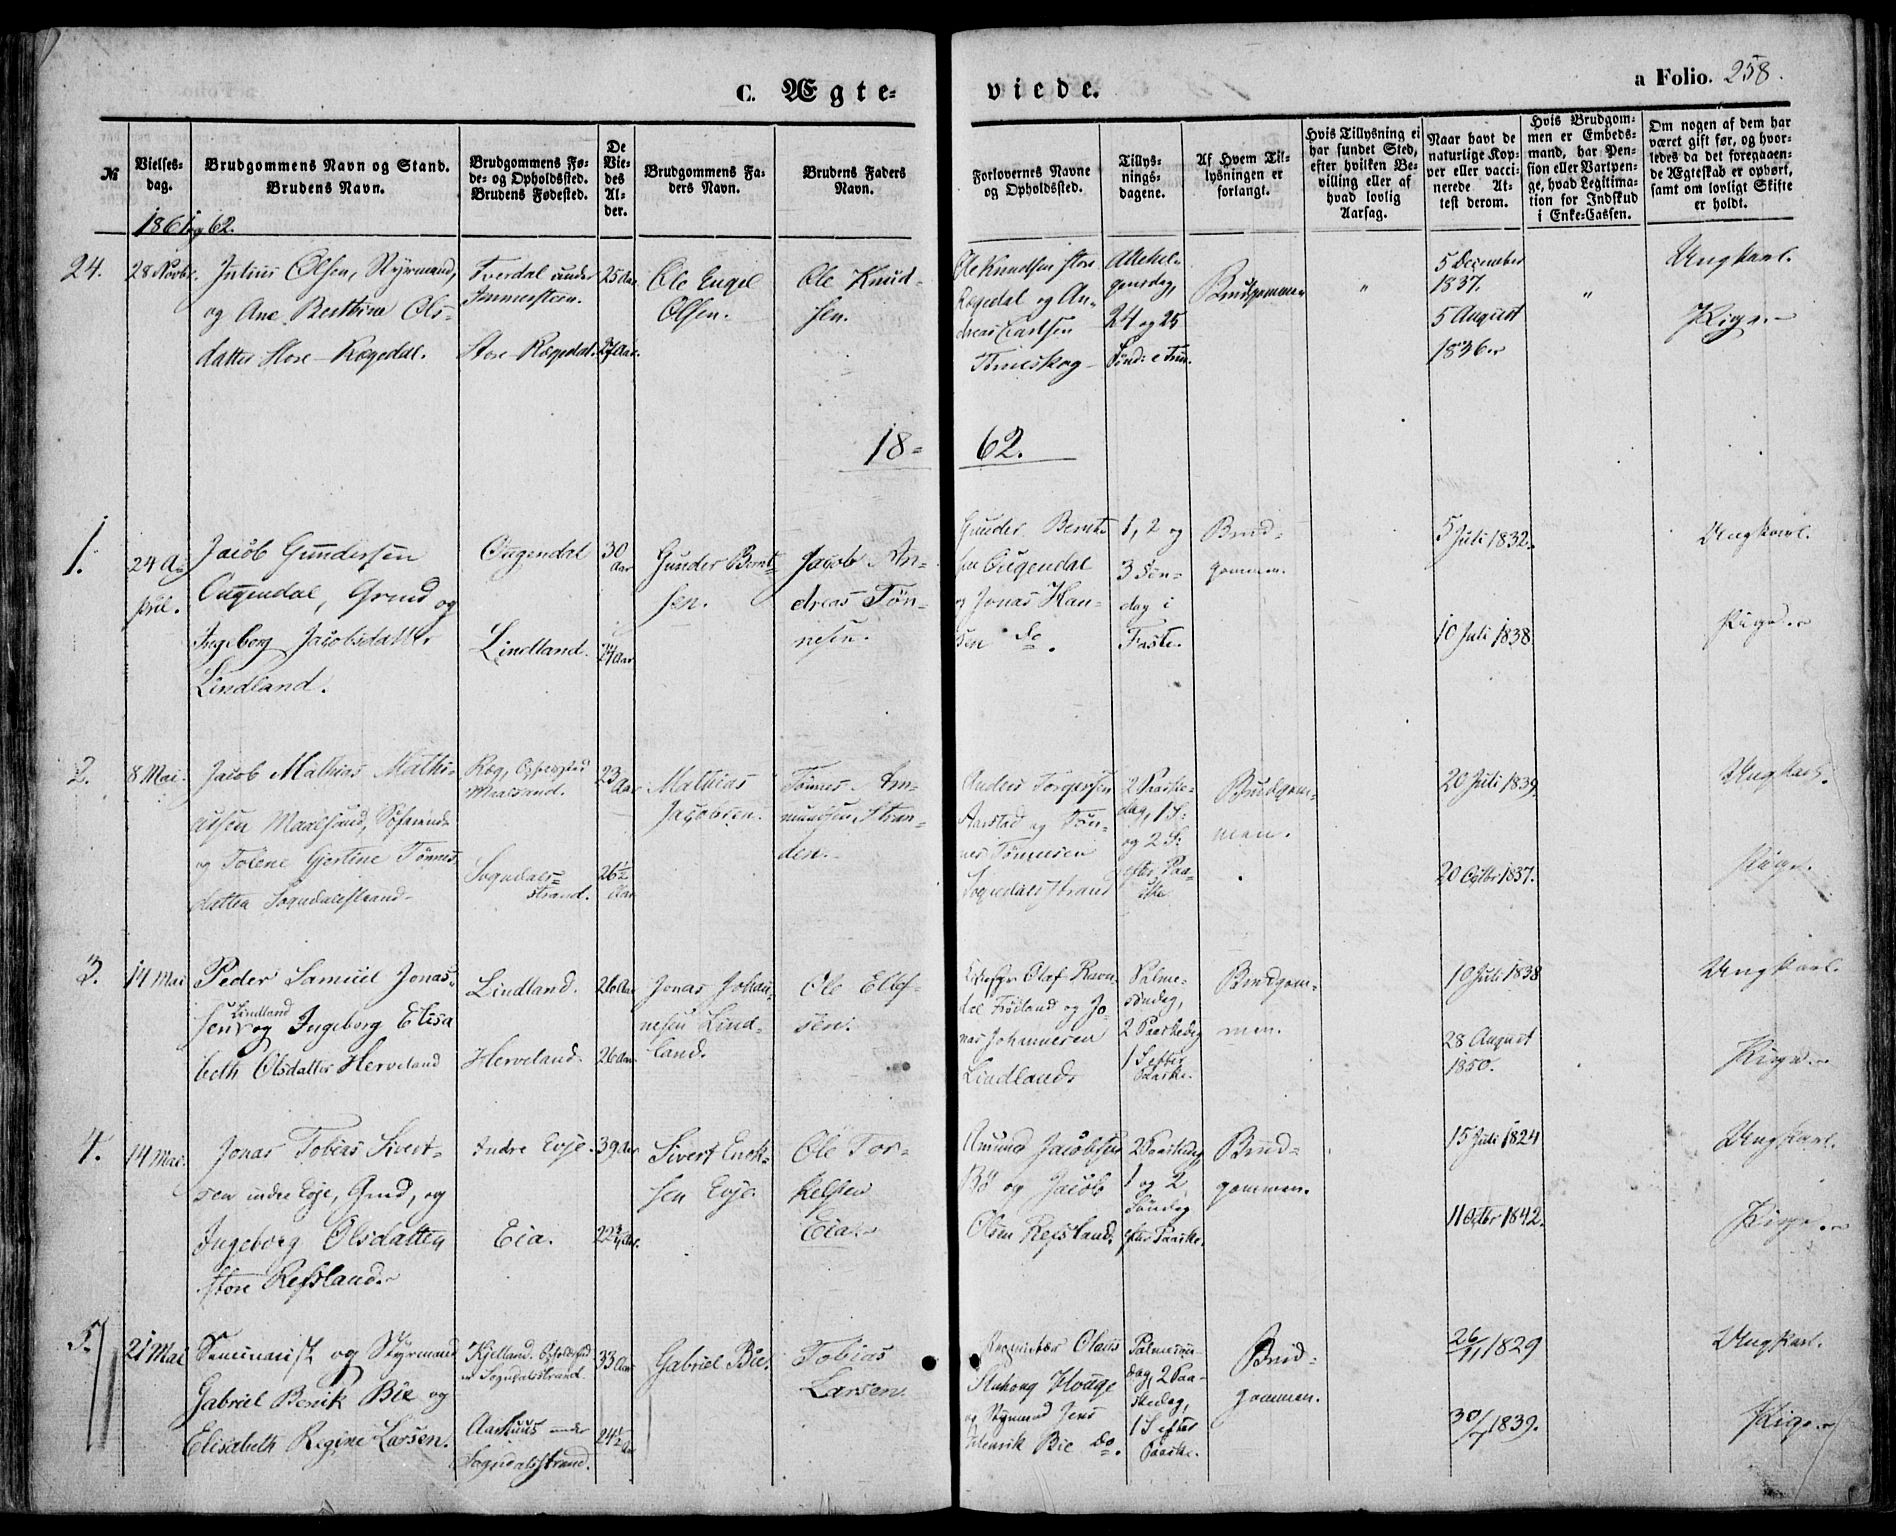 C. Ægte-
viede.
a Folio. 258.
№
Vielses-
dag.
Brudgommens Navn og Stand.
Brudens Navn.
Brudgommens Fø-
de- og Opholdssted.
Brudens Fødested.
De
Vie-
des
Al-
der.
Brudgommens Fa-
ders Navn.
Brudens Faders
Navn.
Forlovernes Navne
og Opholdssted.
Tillys-
nings-
dagene.
Af Hvem Til-
lysningen er
forlangt.
Hvis Tillysning ei
har fundet Sted,
efter hvilken Be-
villing eller af
hvad lovlig
Aarsag.
Naar havt de
naturlige Kop-
per eller vacci-
nerede. At-
test derom.
Hvis Brudgom-
men er Embeds-
mand, har Pen-
sion eller Vartpen-
ge, hvad Legitima-
tion for Indskud
i Enke-Cassen.
Om nogen af dem har
været gift før, og hvor-
ledes da det foregaaen-
de Ægteskab er ophørt,
samt om lovligt Skifte
er holdt.
1861 og 62.
24.
28 Novbr.
Julius Olsen, Styrmand,
og Ane Berthine Ols-
datter Store-Rægedal.
Tverdal under
Store-Rægedal.
25 Aar
Ole Engel
Olsen.
Ole Knud-
sen.
Ole Knudsen store
Rægedal og An-
dreas Carlsen
Allehel-
gensdag,
24 og 25
Sønd: e Trin.
Brudgommen
"
5 December
1837.
5 August
1836
"
Ungkarl.
Pige
18-
62.
1.
24 A-
pril.
Jacob Gundersen
Ougendal, Grmd og
Ingeborg Jacobsdatter
Lindland.
Ougendal
Lindland.
30
Aar
24 Aar
Gunder Bernt-
sen.
Jacob An-
dreas Tøn-
nesen.
Gunder Bernt-
sen Ougendal
og Jonas Han-
sen do.
1, 2 og
3 Søn-
dag i
Faste.
Brud-
gommen.
5 Juli 1832.
10 Juli 1838.
Ungkarl.
Pige
2.
8 Mai.
Jacob Mathias Mathi-
asen Maalsund, Søfarende
og Tolene Gjertine Tønnes-
datter Sogndalsstrand
Ræg, Opholdssted
Sogndals-
strand.
23 Aar
26 1/2
Aar
Mathias
Jacobsen.
Tønnes Am-
undsen, Stran-
den.
Anders Torgersen
Aarstad og Tøn-
nes Tønnesen
Sogndalsstrand
2 Paaske-
dag, 1 S:
og 2 S:
efter Paa-
ske
Brudgom-
men.
20 Juli 1839.
20 Octbr 1837.
Ungkarl.
Pige
3.
14 Mai
Peder Samuel Jonas-
sen Lindland og Ingeborg Elisa
beth Olsdatter Herveland
Lindland.
Herveland.
26 Aar
26 Aar
Jonas Johan-
nesen Lind-
land.
Ole Ellef-
sen.
Olaf Ravn-
dal Frøiland og Jo-
nas Johannesen
Lindland
Palme-
søndag,
2 Paaskedag
1 S efter
Paaske.
Brudgom-
men.
10 Juli 1838
28 August
1850.
Ungkarl.
Pige
4.
14 Mai.
Jonas Tobias Sivert-
sen indre Evje, Grmd, og
Ingeborg Olsdatter
store Refsland.
Indre Evje.
Eia.
39 Aar
Sivert Erik-
sen Evje
Ole Tor-
kelsen
Eia.
Amund Jacobsen
Bø og Jacob
Olsen Refsland.
2 Paaskedag
1 og 2
Søndag
efter Paaske.
Brud-
gommen.
15 Juli 1824
11 Octbr 1842.
Ungkarl.
Pige
5.
21 Mai
Seminarist og Styrmand
Gabriel Benik Bie og
Elisabeth Regine Larsen.
Kjelland. Opholdssted
Sogndalsstrand
Aarhuus under
Sogndalsstrand.
33 Aar
24 1/2
Aar
Gabriel Bie.
Tobias
Larsen.
Olaus
Hauge
og Styrmand Jens
Henrik Bie do.
Palmesøn-
dag, 2 Paa-
skedag,
1 S efter
Paaske.
Brud-
gommen.
26/11 1829
30/7 1839.
Ungkarl.
Pige